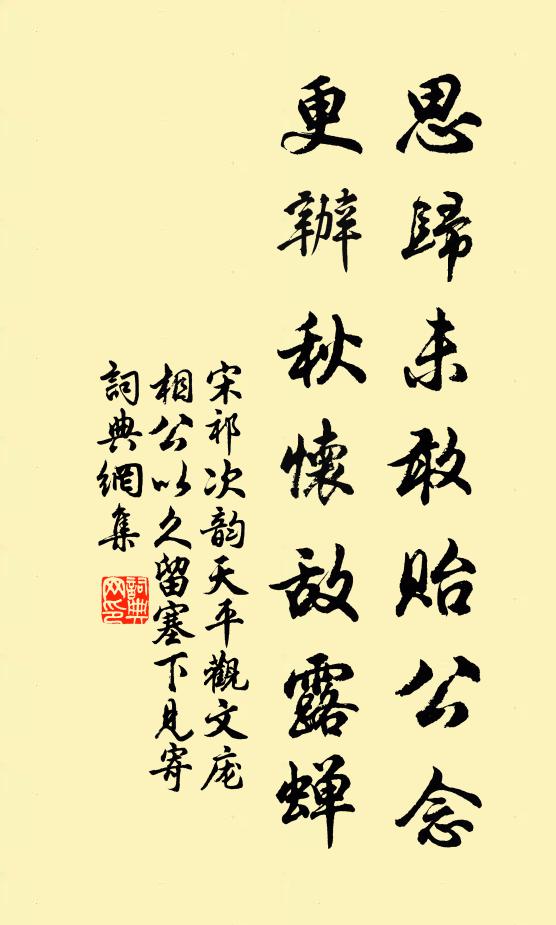 思歸未敢貽公念
更辦秋懷敵露蟬
宋祁次韵天平觀文庞
相公以久留塞下見寄
詞典網集
詞典
网印